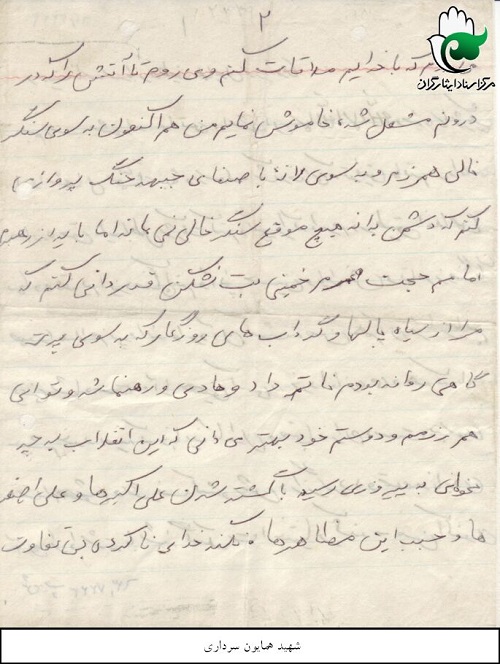 ۲
که با خدایم ملاقات کنم و می روم تا آتش را که در
درونم مشتعل شده خاموش نمایم من هم اکنون به سوی سنگر
خالی همرزم و به سوی لانه با صفای جبهه جنگ پرواز می
کنم که دشمن بداند هیچ موقع سنگر خالی نمی ماند اما باید از رهبرم
امامم حجت خمینی بت شکن قدردانی کنم که
مرا از سیاه چالها و گرداب های روزگار که به سوی پرت
گاهی روانه بودم نجاتم داد و هادی و رهنما شد و تو ای
همرزمم و دوستم خود بهتر می دانی که این انقلاب به چه
نحوی به پیروزی رسید با کشته شدن علی اکبرها و علی اصغر
ها و حبیب ابن مظاهرها نکند خدای نا کرده بی تفاوت
مرکز اسناد ایثارگران
شهید همایون سرداری